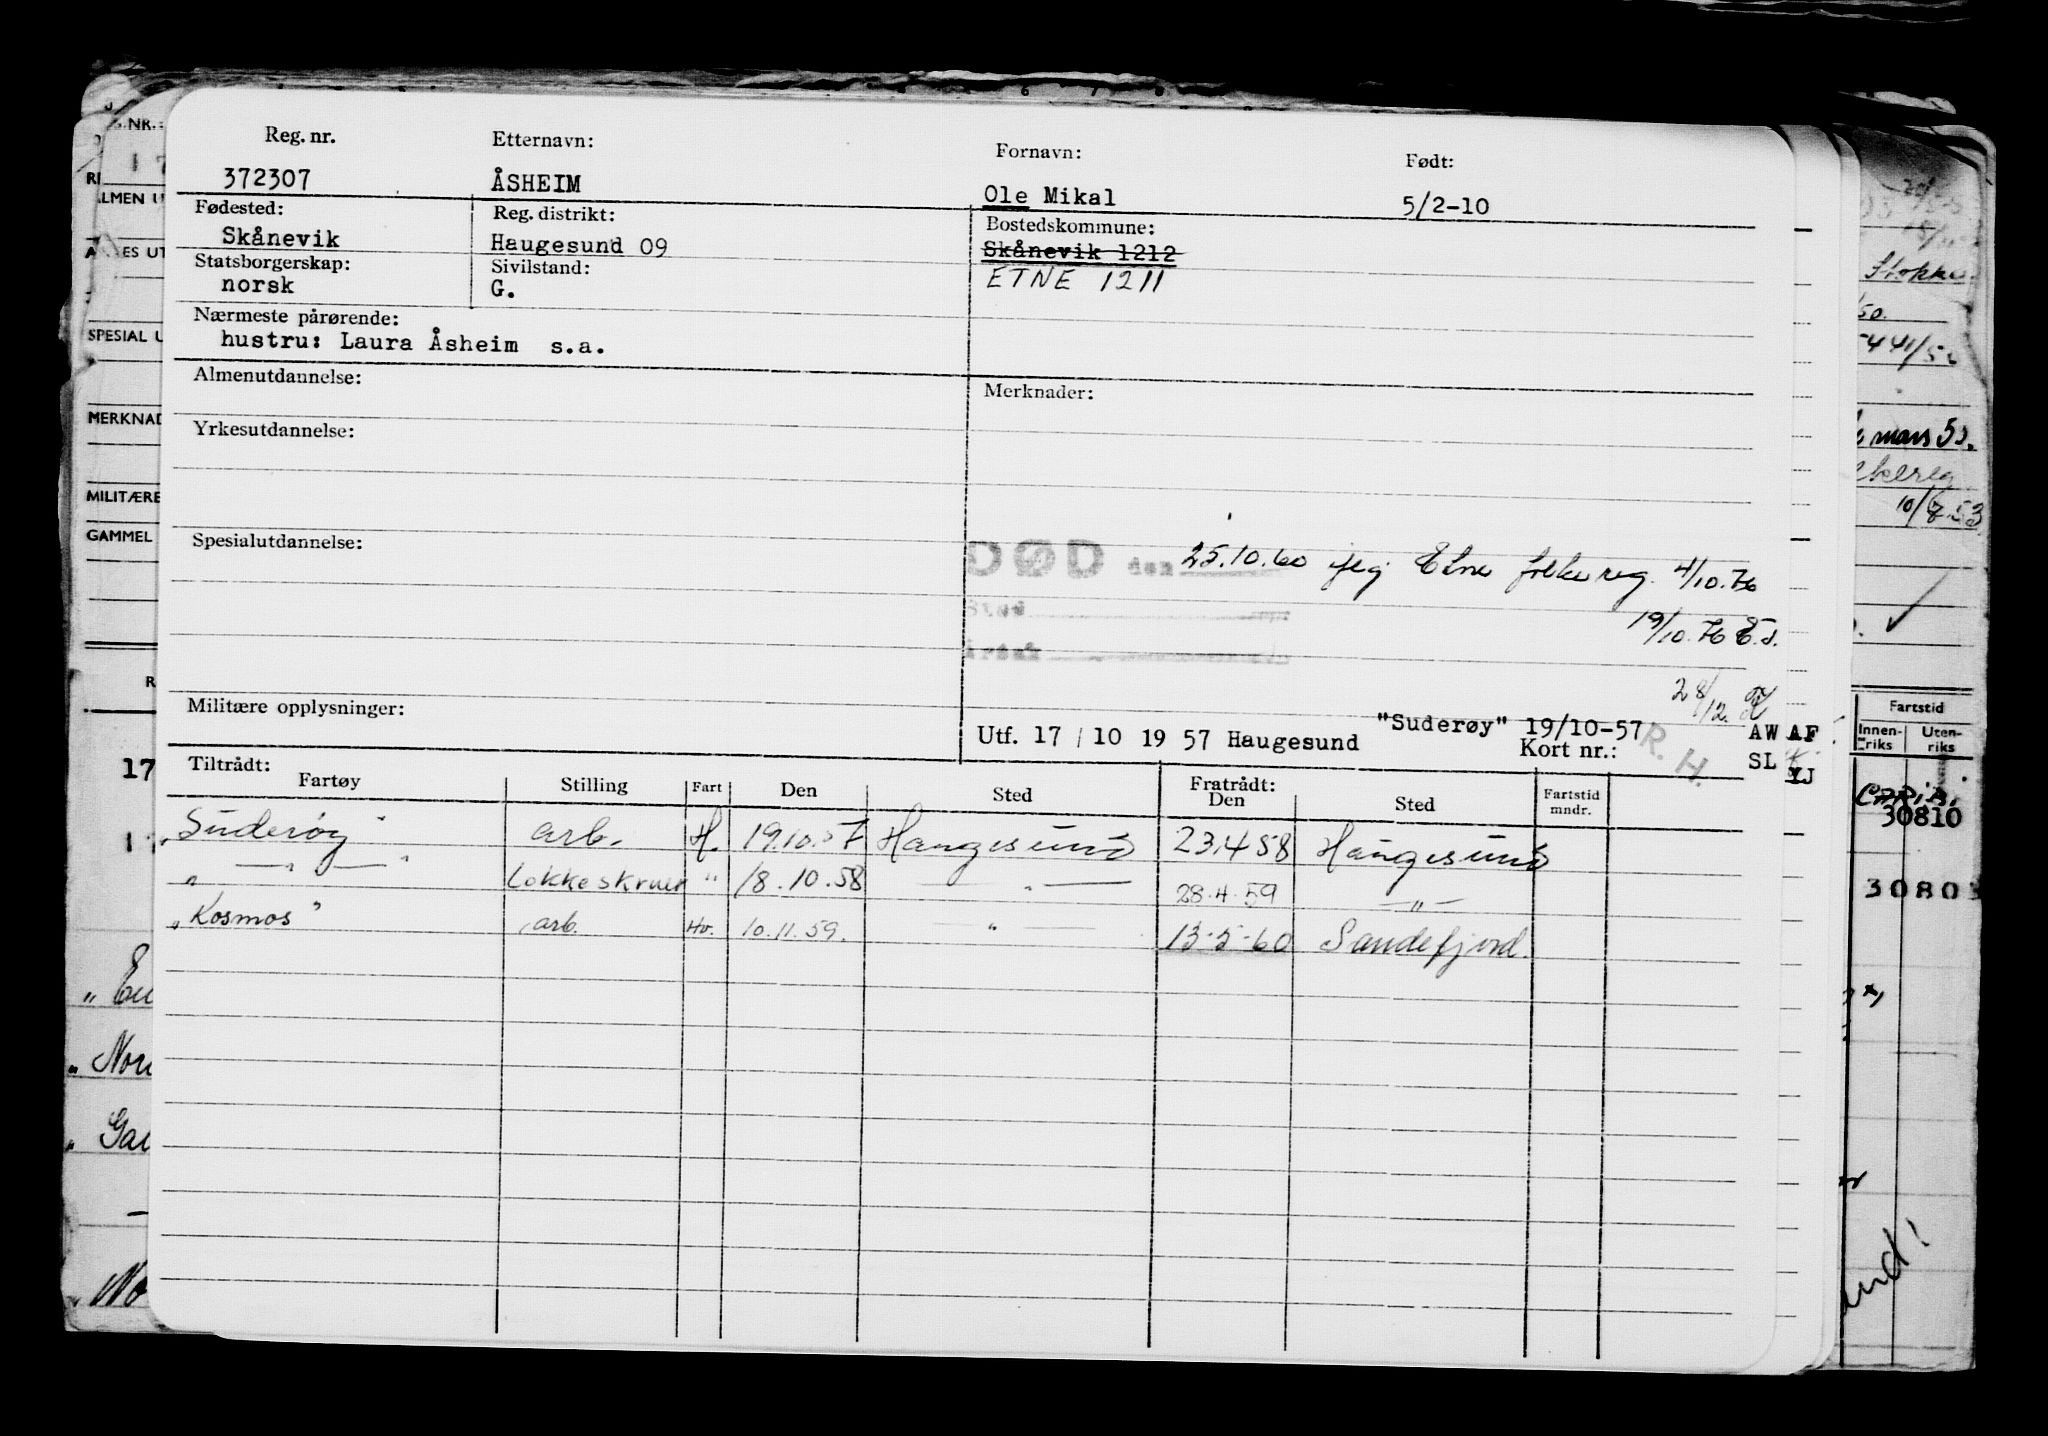 Reg. nr. Etternavn: Fornavn: Født:
372307 ÅSHEIM Ole Mikal 5/2-10
Fødested: Reg. distrikt: Bostedskommune:
Skånevik Haugesund 09 Skånevik 1212
Statsborgerskap: Sivilstand: ETNE 1211
norsk G.
Nærmeste pårørende:
hustru: Laura Åsheim s.a.
Almenutdannelse: Merknader:
Yrkesutdannelse:
Spesialutdannelse:
DØD den 25.10.60 iflg. Etne folkereg. 4/10.76
Sted 19/10.76
Årsak
28/12.
Militære opplysninger:
"Suderøy" 19/10-57 R. H. AW AF
Utf. 17 / 10 19 57 Haugesund Kort nr.: SL YJ
Tiltrådt: Fratrådt:
Fartøy Stilling Fart Den Sted Den Sted Fartstid mndr.
"Suderøy" arb. H. 19.10.57 Haugesund 23.4.58 Haugesund
" — " — " Lokkeskruer " 18.10.58 — " — 28.4.59 — " —
"Kosmos" arb. Hv. 10.11.59. " — 13-5-60 Sandefjord.
S.NR.:
17
ALMEN U
SPESIAL U
MERKNAD
MILITÆRE
GAMMEL
R
17
" Nor
" Gar
" No
5441/5
mars 53.
10/8 53
Fartstid
Innen-riks Uten-riks
30810
3080